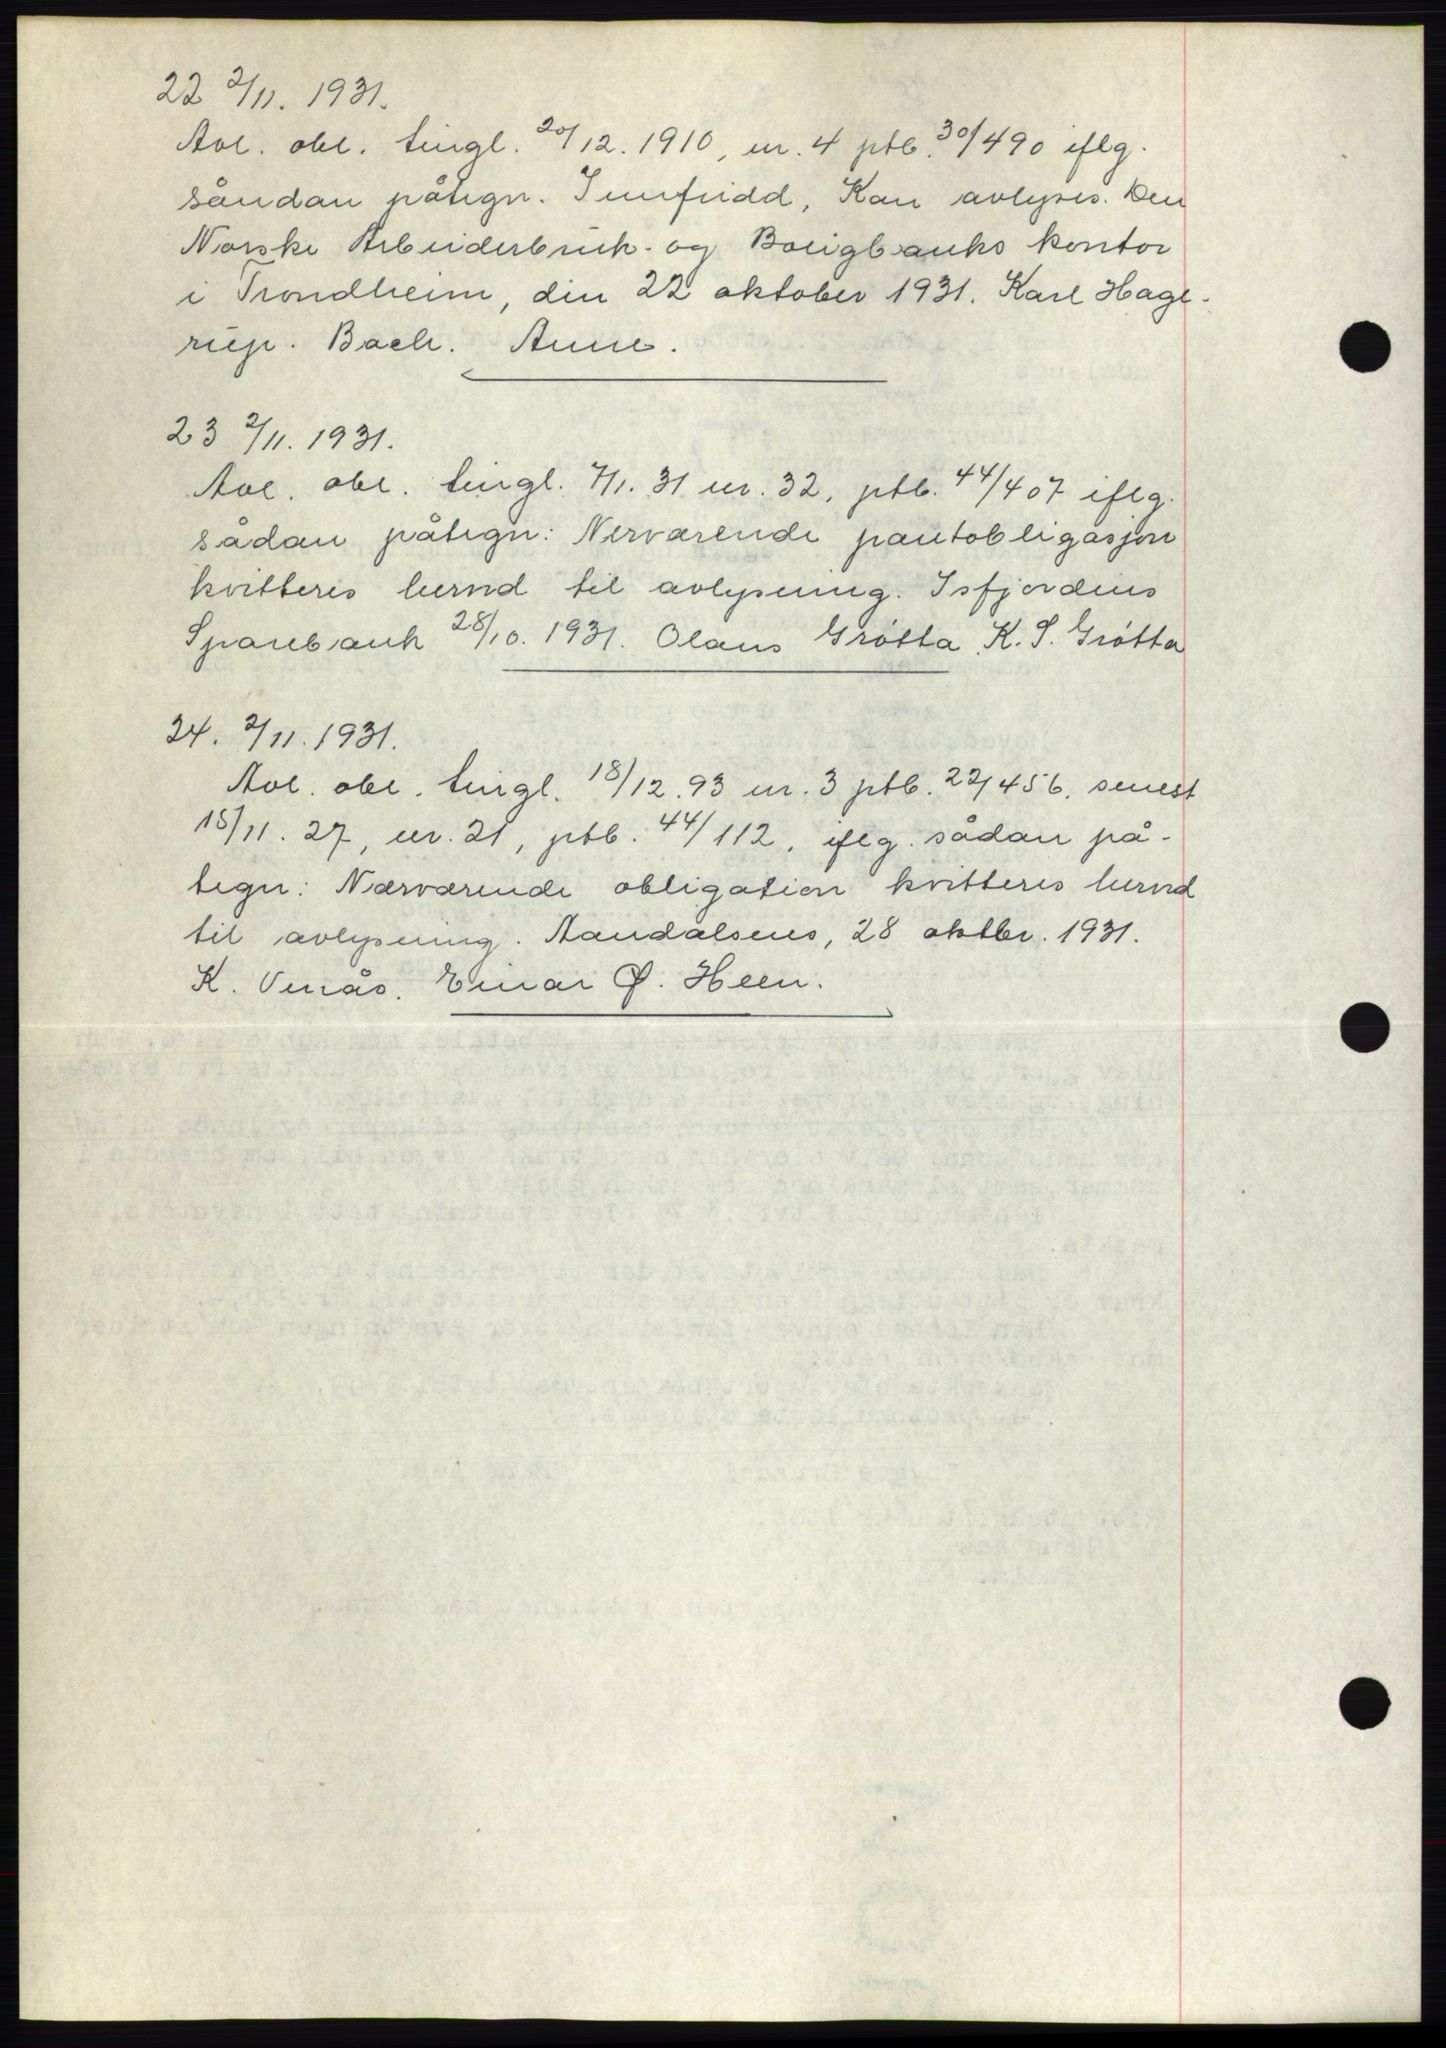 22 2/11. 1931.
Avl. obl. tingl. 20/12. 1910, nr. 4 ptb. 30/490 iflg.
såndan påtegn. Innfridd, Kan avlyses. Den
Norske Arbeiderbruk- og Boligbanks kontor
i Trondheim, den 22 oktober 1931. Karl Hage-
rup. Bach. Anne.
23 2/11. 1931.
Avl. obl. tingl. 7/1. 31 nr. 32, ptb. 44/407 iflg.
sådan påtegn: Nerværende pantobligasjon
kvitteres herved til avlysning. Isfjordens
Sparebank 28/10. 1931. Olaus Grøtta K. S. Grøtta
24. 2/11. 1931.
Avl. obl. tingl. 18/12. 93 nr. 3 ptb. 22/456, senest
15/11. 27, nr. 21, ptb. 44/112, iflg. sådan på-
tegn: Nærværende obligation kvitteres herved
til avlysning. Aandalsnes, 28 oktbr. 1931.
K. Venås. Einar Ø. Heen.